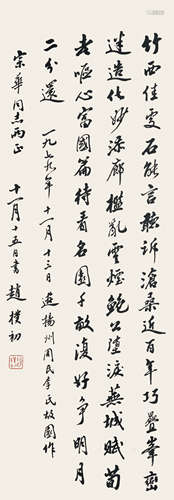 竹西佳處石能言聽訴滄桑近百年巧疊峯巒
迷造化妙添廊檻亂雲煙鮑公墮淚蕪城賦荀
老嘔心富國篇待看名園千畝復好爭明月
二分還 一九七九年十一月十三日遊揚州周氏李氏故園作
宗華同志兩正
十一月十五日書 趙樸初